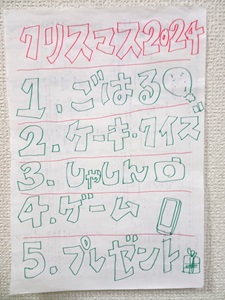 クリスマス2024
1.ごはん
2.ケーキ・クイズ
3.しゃしん
4.ゲーム
5.プレゼント